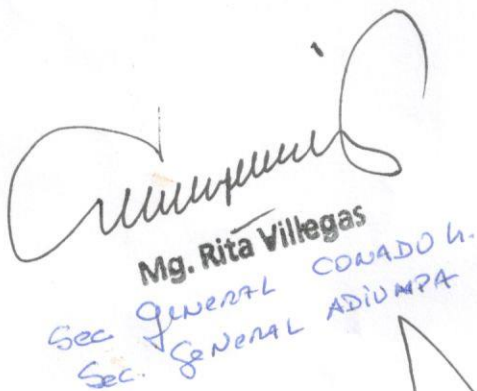 Mg. Rita Villegas
Sec General CONADU H.
Sec. General ADIUNPA